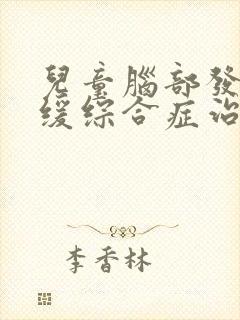 兒童腦部發
緩綜合症治
李香林